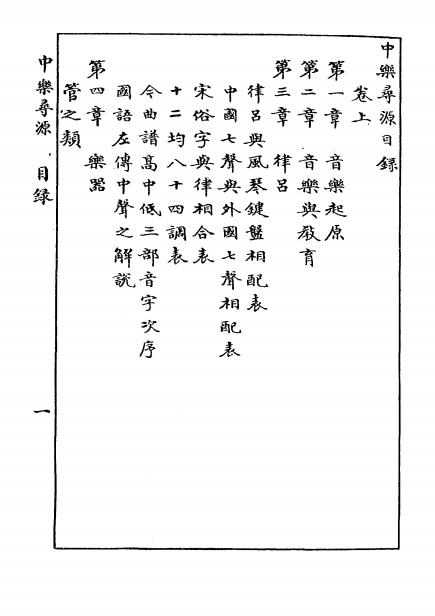 中樂尋源目錄
卷上
第一章 音樂起原
第二章 音樂與教育
第三章 律呂
律呂與風琴鍵盤相配表
中國七聲與外國七聲相配表
宋俗字與律相合表
十二均八十四調表
今曲譜高中低三部音字次序
國語左傳中聲之解說
第四章 樂器
管之類
中樂尋源 目錄
一